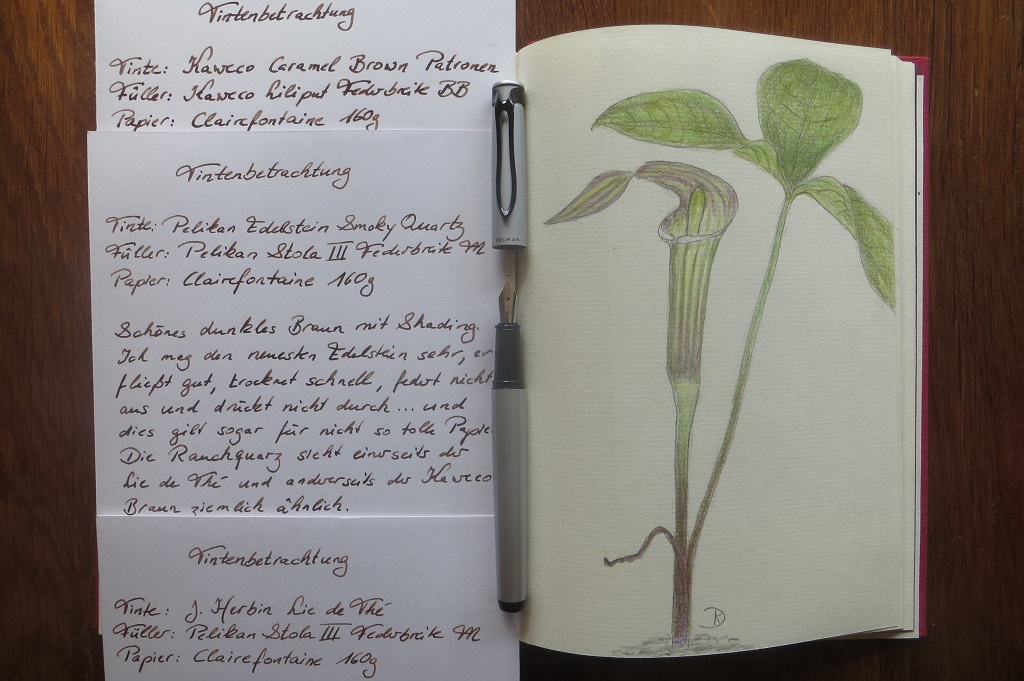 Tintenbetrachtung
Tinte: Kaweco Caramel Brown Patronen
Füller: Kaweco Liliput Federbreite BB
Papier: Clairefontaine 160g
Tintenbetrachtung
Tinte: Pelikan Edelstein Smoky Quartz
Füller: Pelikan Stola III Federbreite M
Papier: Clairefontaine 160g
Schönes dunkles Braun mit Shading.
Ich mag den neuesten Edelstein sehr, er
fließt gut, trocknet schnell, federt nicht
aus und drückt nicht durch... und
dies gilt sogar für nicht so tolle Papie
Die Rauchquarz sieht einerseits der
Lie de Thé und andererseits der Kaweco
Braun ziemlich ähnlich.
Tintenbetrachtung
Tinte: J. Herbin Lie de Thé
Füller: Pelikan Stola III Federbreite M
Papier: Clairefontaine 160g
PELIKAN